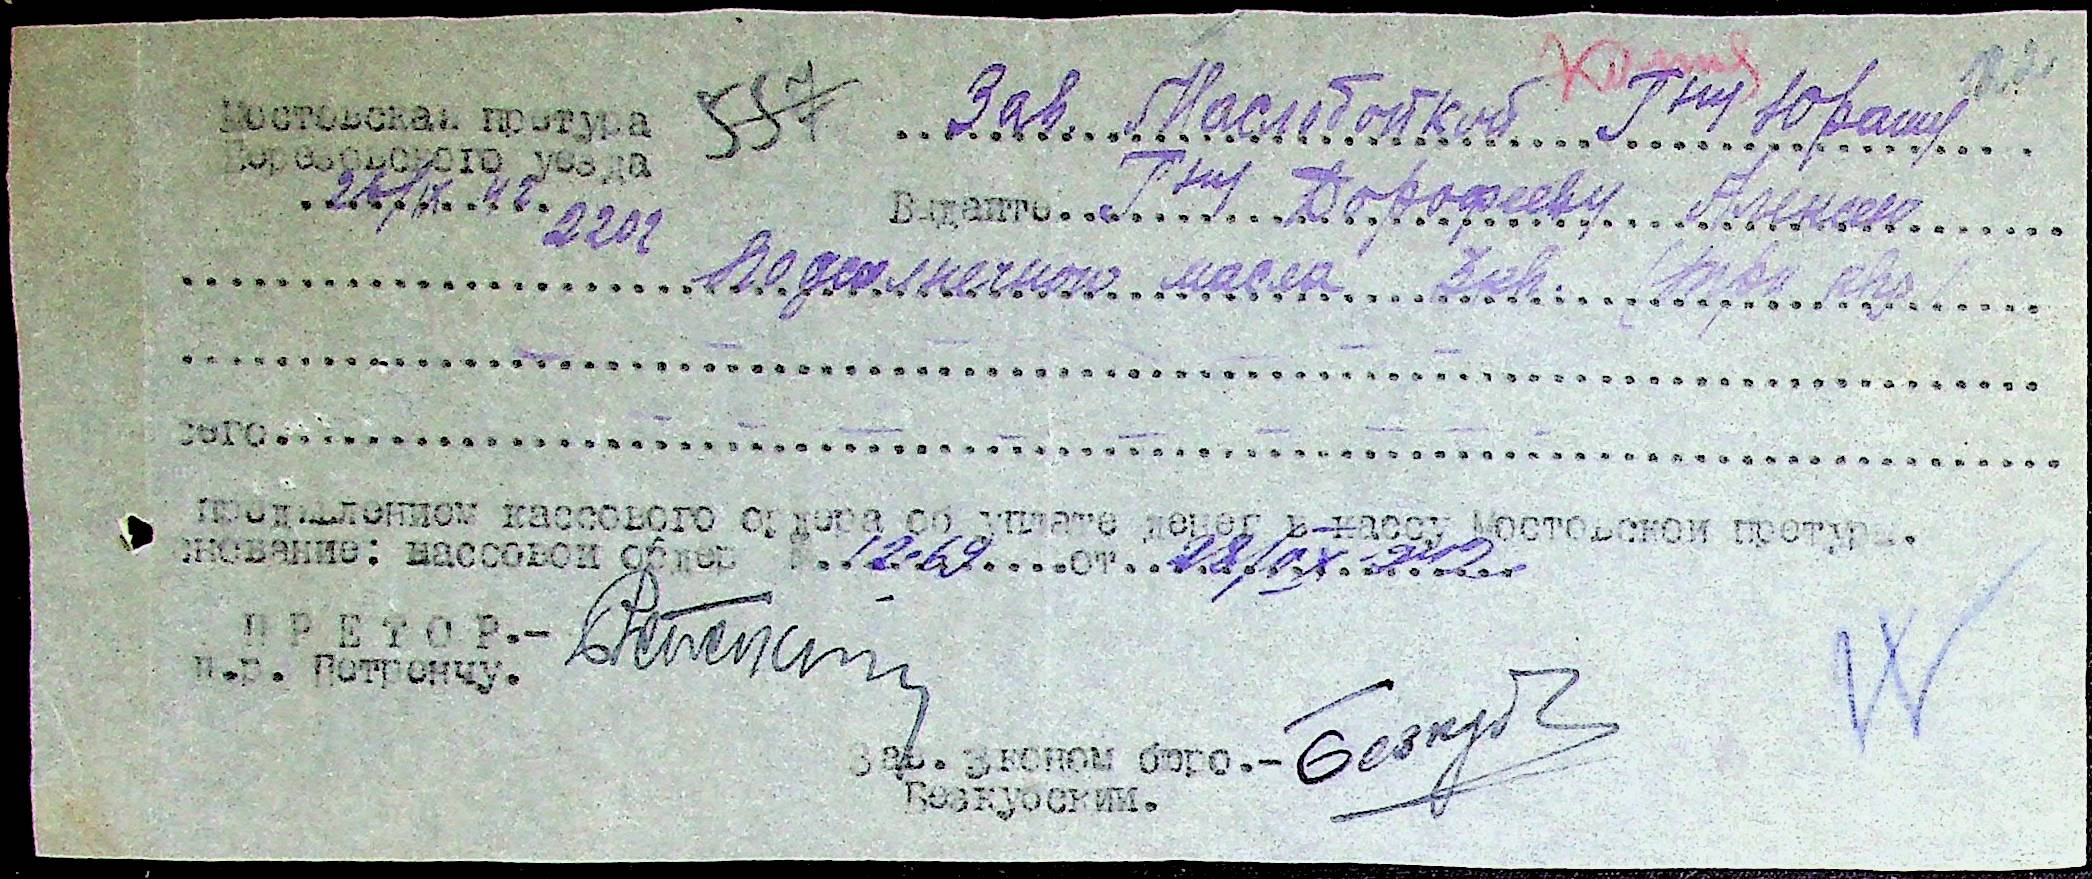 Мостовская претура
Березовского уезда
24/IX 42
2202
557
Зав. Маслобойкой Гну Юрашу
Выдайте Гну Дорофееву
Подсолнечного масла 3 кв. (три кво)
сего
пред'явлением кассового ордера об уплате денег в кассу Мостовской претуры.
снование: кассовой ордер № 1269 от 28/IX 42
ПРЕТОР.-
П.р. Петренчу.
Зав. Эконом бюро.- Безкуб
Безкубским.